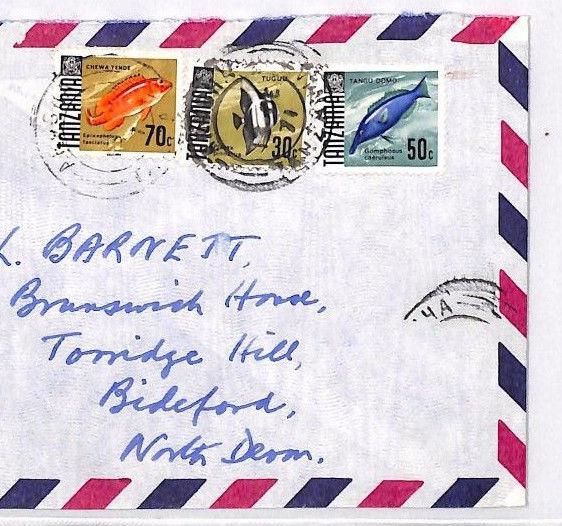 CHEWA TENDE
TANZANIA
Epinephelus
fasciatus
70c
TUGUU
TANZANIA
30c
TANGU DOMO
TANZANIA
Gomphosus
caeruleus
50c
L. BARNETT,
Brunswick House,
Torridge Hill,
Bideford,
North Devon.